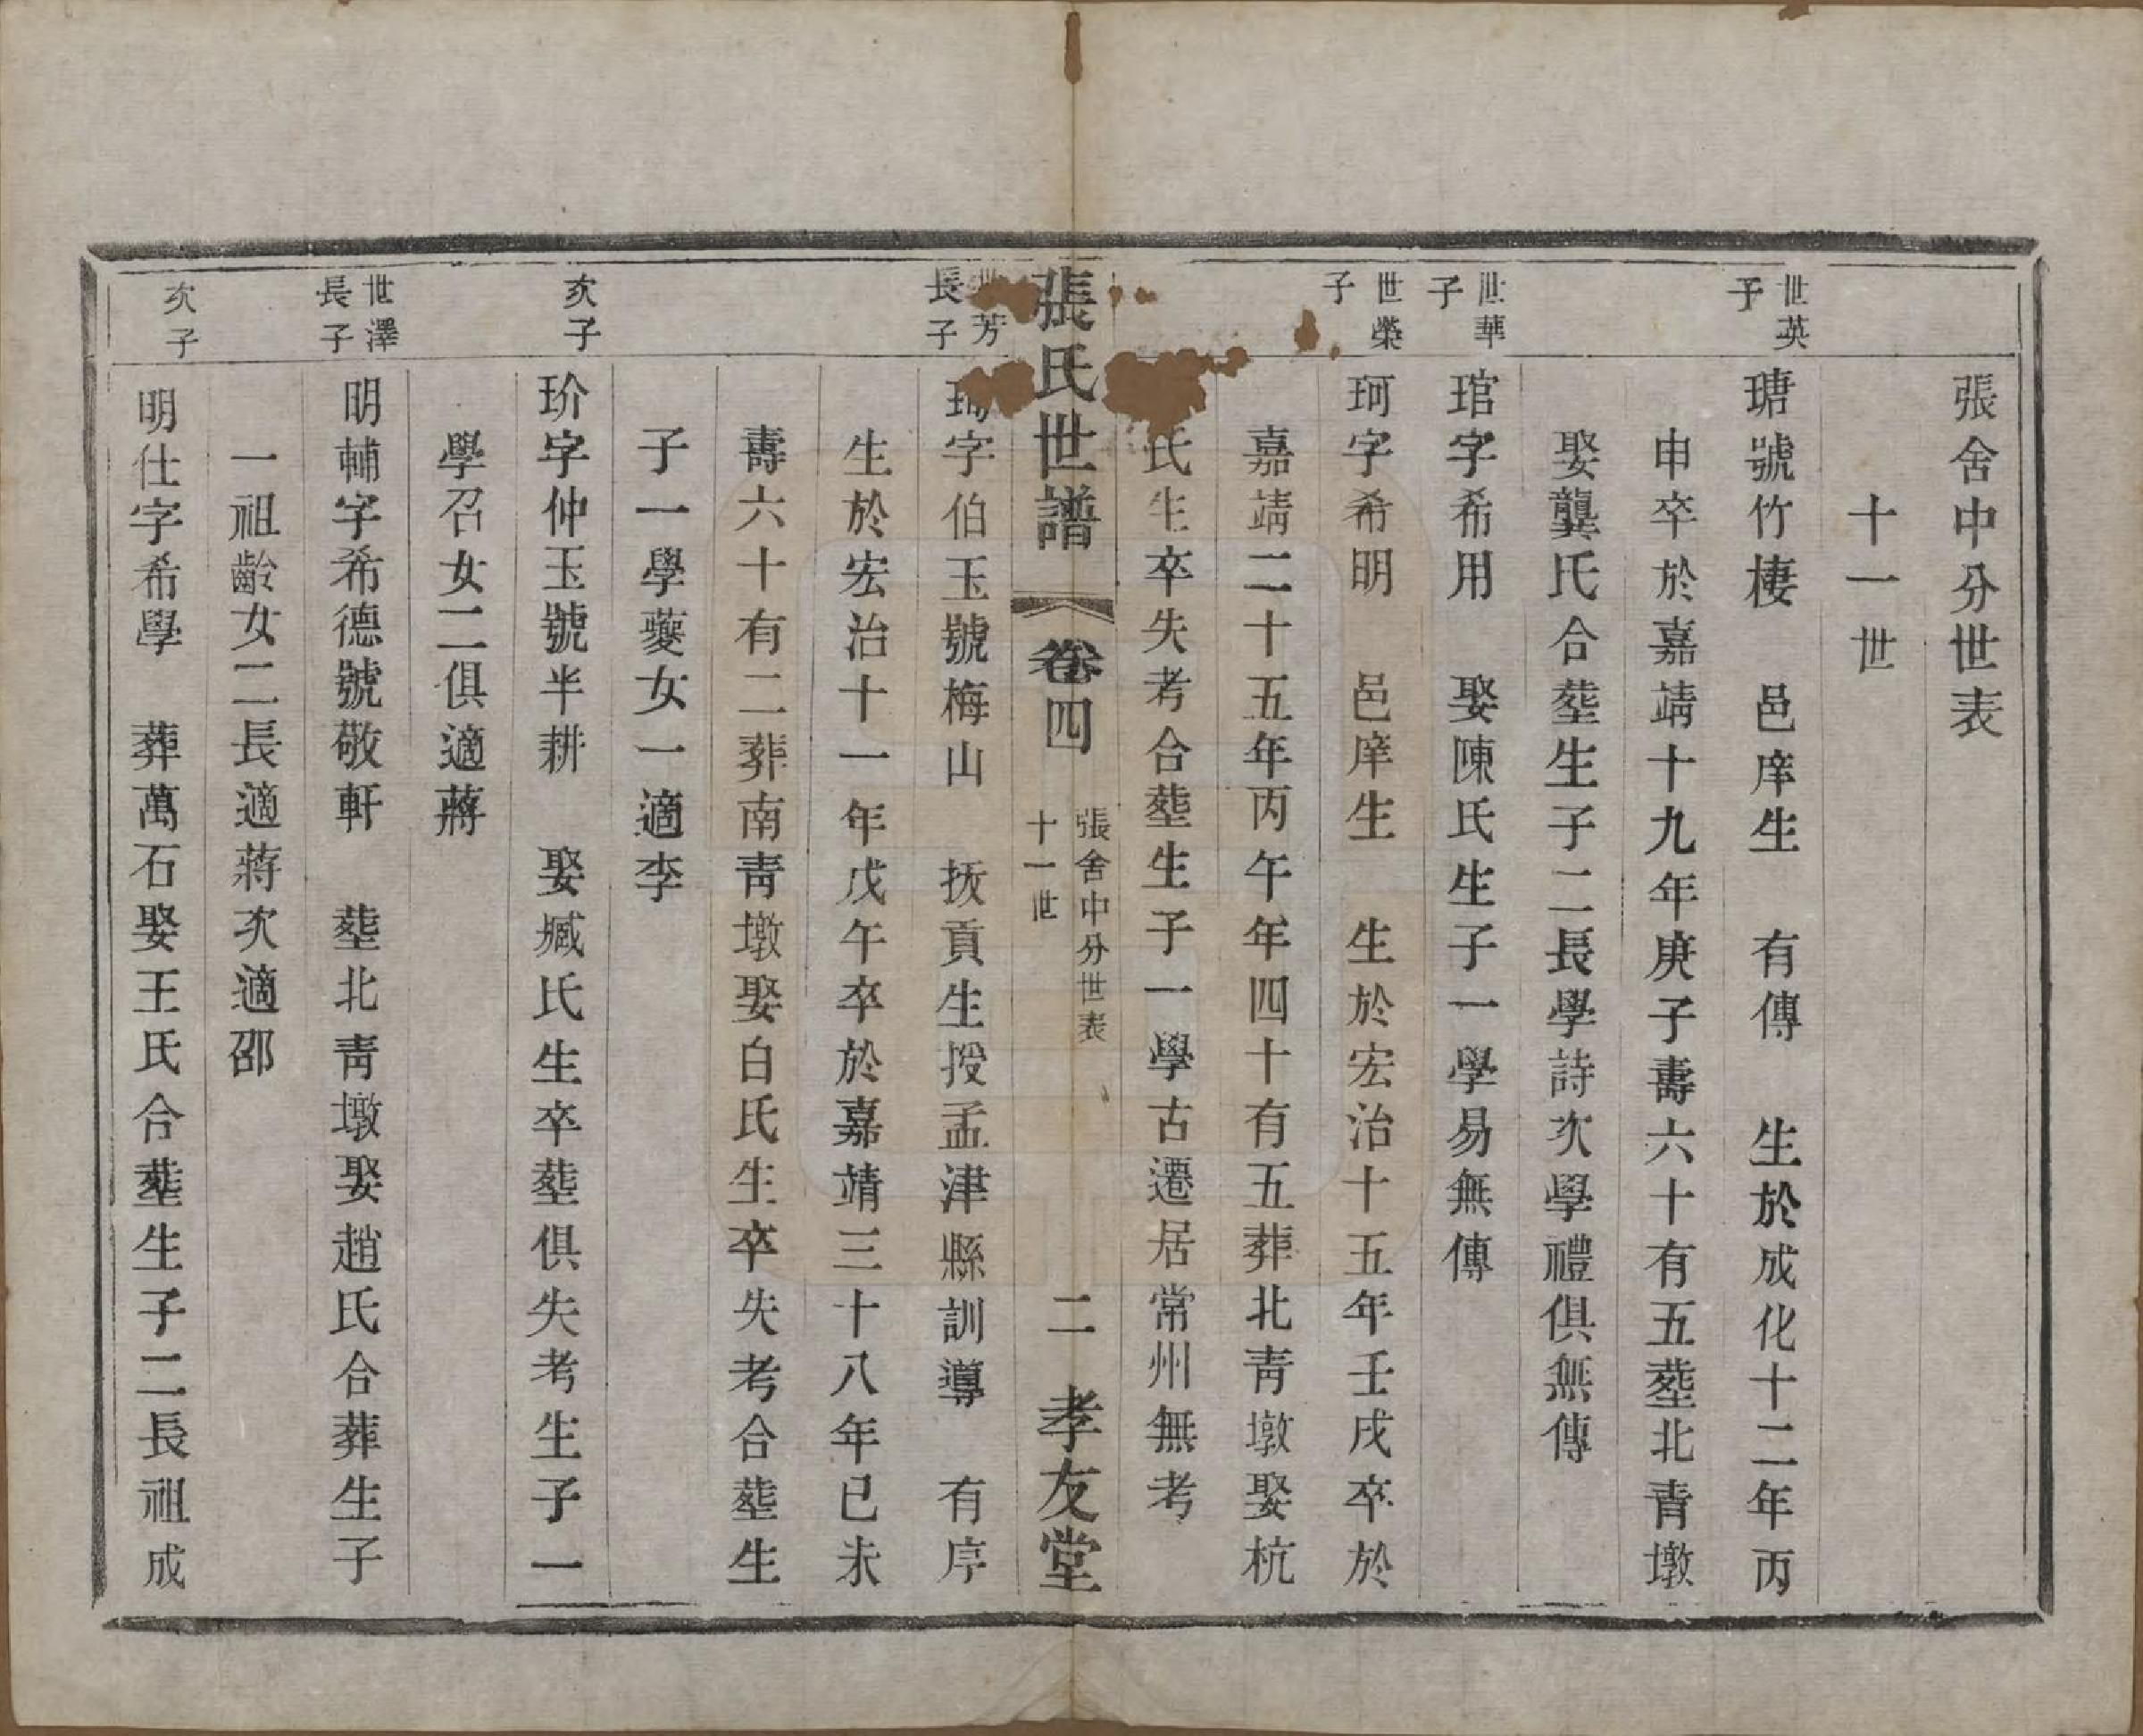 張舍中分世表
十一世
世英
子
瑭號竹棲　邑庠生　有傳　生於成化十二年丙
申卒於嘉靖十九年庚子壽六十有五塟北青墩
娶龔氏合塟生子二長學詩次學禮俱無傳
世華
子
琯字希用　娶陳氏生子一學易無傳
世榮
子
珂字希明　邑庠生　生於宏治十五年壬戌卒於
嘉靖二十五年丙午年四十有五葬北青墩娶杭
氏生卒失考合塟生子一學古遷居常州無考
張氏世譜
卷四
張舍中分世表
十一世
二
孝友堂
世芳
長子
字伯玉號梅山　拔貢生授孟津縣訓導　有序
生於宏治十一年戊午卒於嘉靖三十八年已未
壽六十有二葬南青墩娶白氏生卒失考合塟生
子一學夔女一適李
次子
玠字仲玉號半耕　娶臧氏生卒塟俱失考生子一
學召女二俱適蔣
世澤
長子
明輔字希德號敬軒　塟北青墩娶趙氏合葬生子
一祖齡女二長適蔣次適邵
次子
明仕字希學　葬萬石娶王氏合塟生子二長祖成